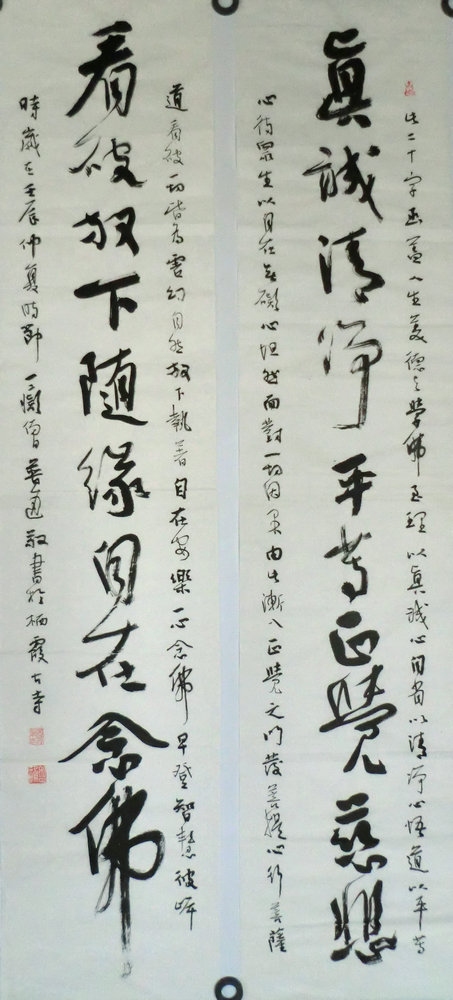 眞誠清淨平等正覺慈悲
此二十字函蓋人生美德之學佛至理以眞誠心自省以清淨心悟道以平等
心待眾生以自在無礙心坦然面對一切因果由此漸入正覺之門發菩提心行菩薩
看破放下隨緣自在念佛
道看破一切皆為虛幻自然放下執著自在安樂一心念佛早登智慧彼岸
時歲在壬辰仲夏時節一僧普敬書於栖霞古寺